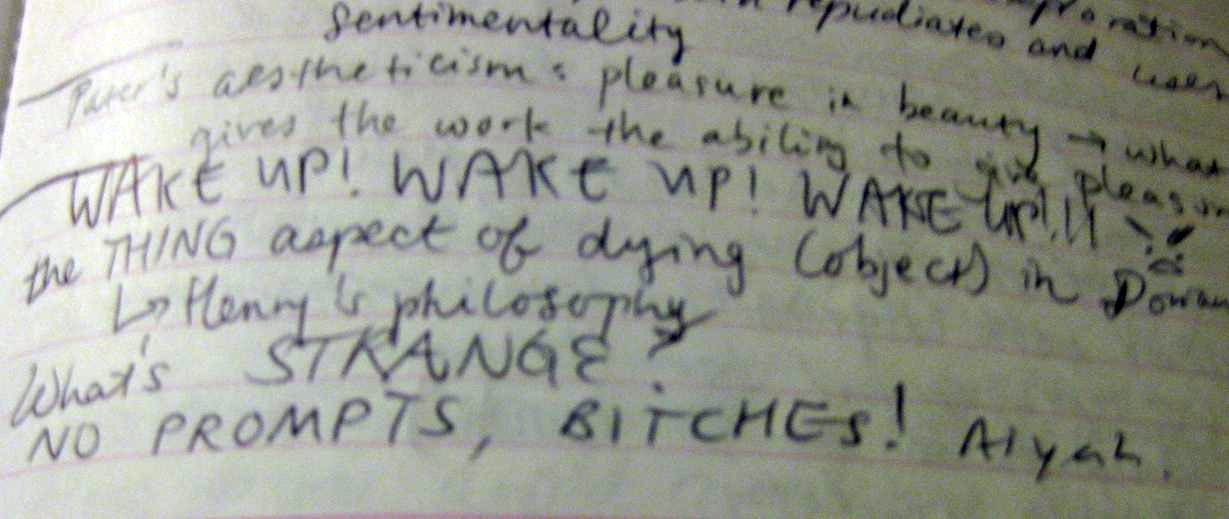 repudiates and uses
sentimentality
Pater's aestheticism: pleasure in beauty → what
gives the work the ability to give pleasure
WAKE UP! WAKE UP! WAKE UP!!!
the THING aspect of dying (object) in Dorian
↳ Henry's philosophy
What's STRANGE?
NO PROMPTS, BITCHES! Aiyah.